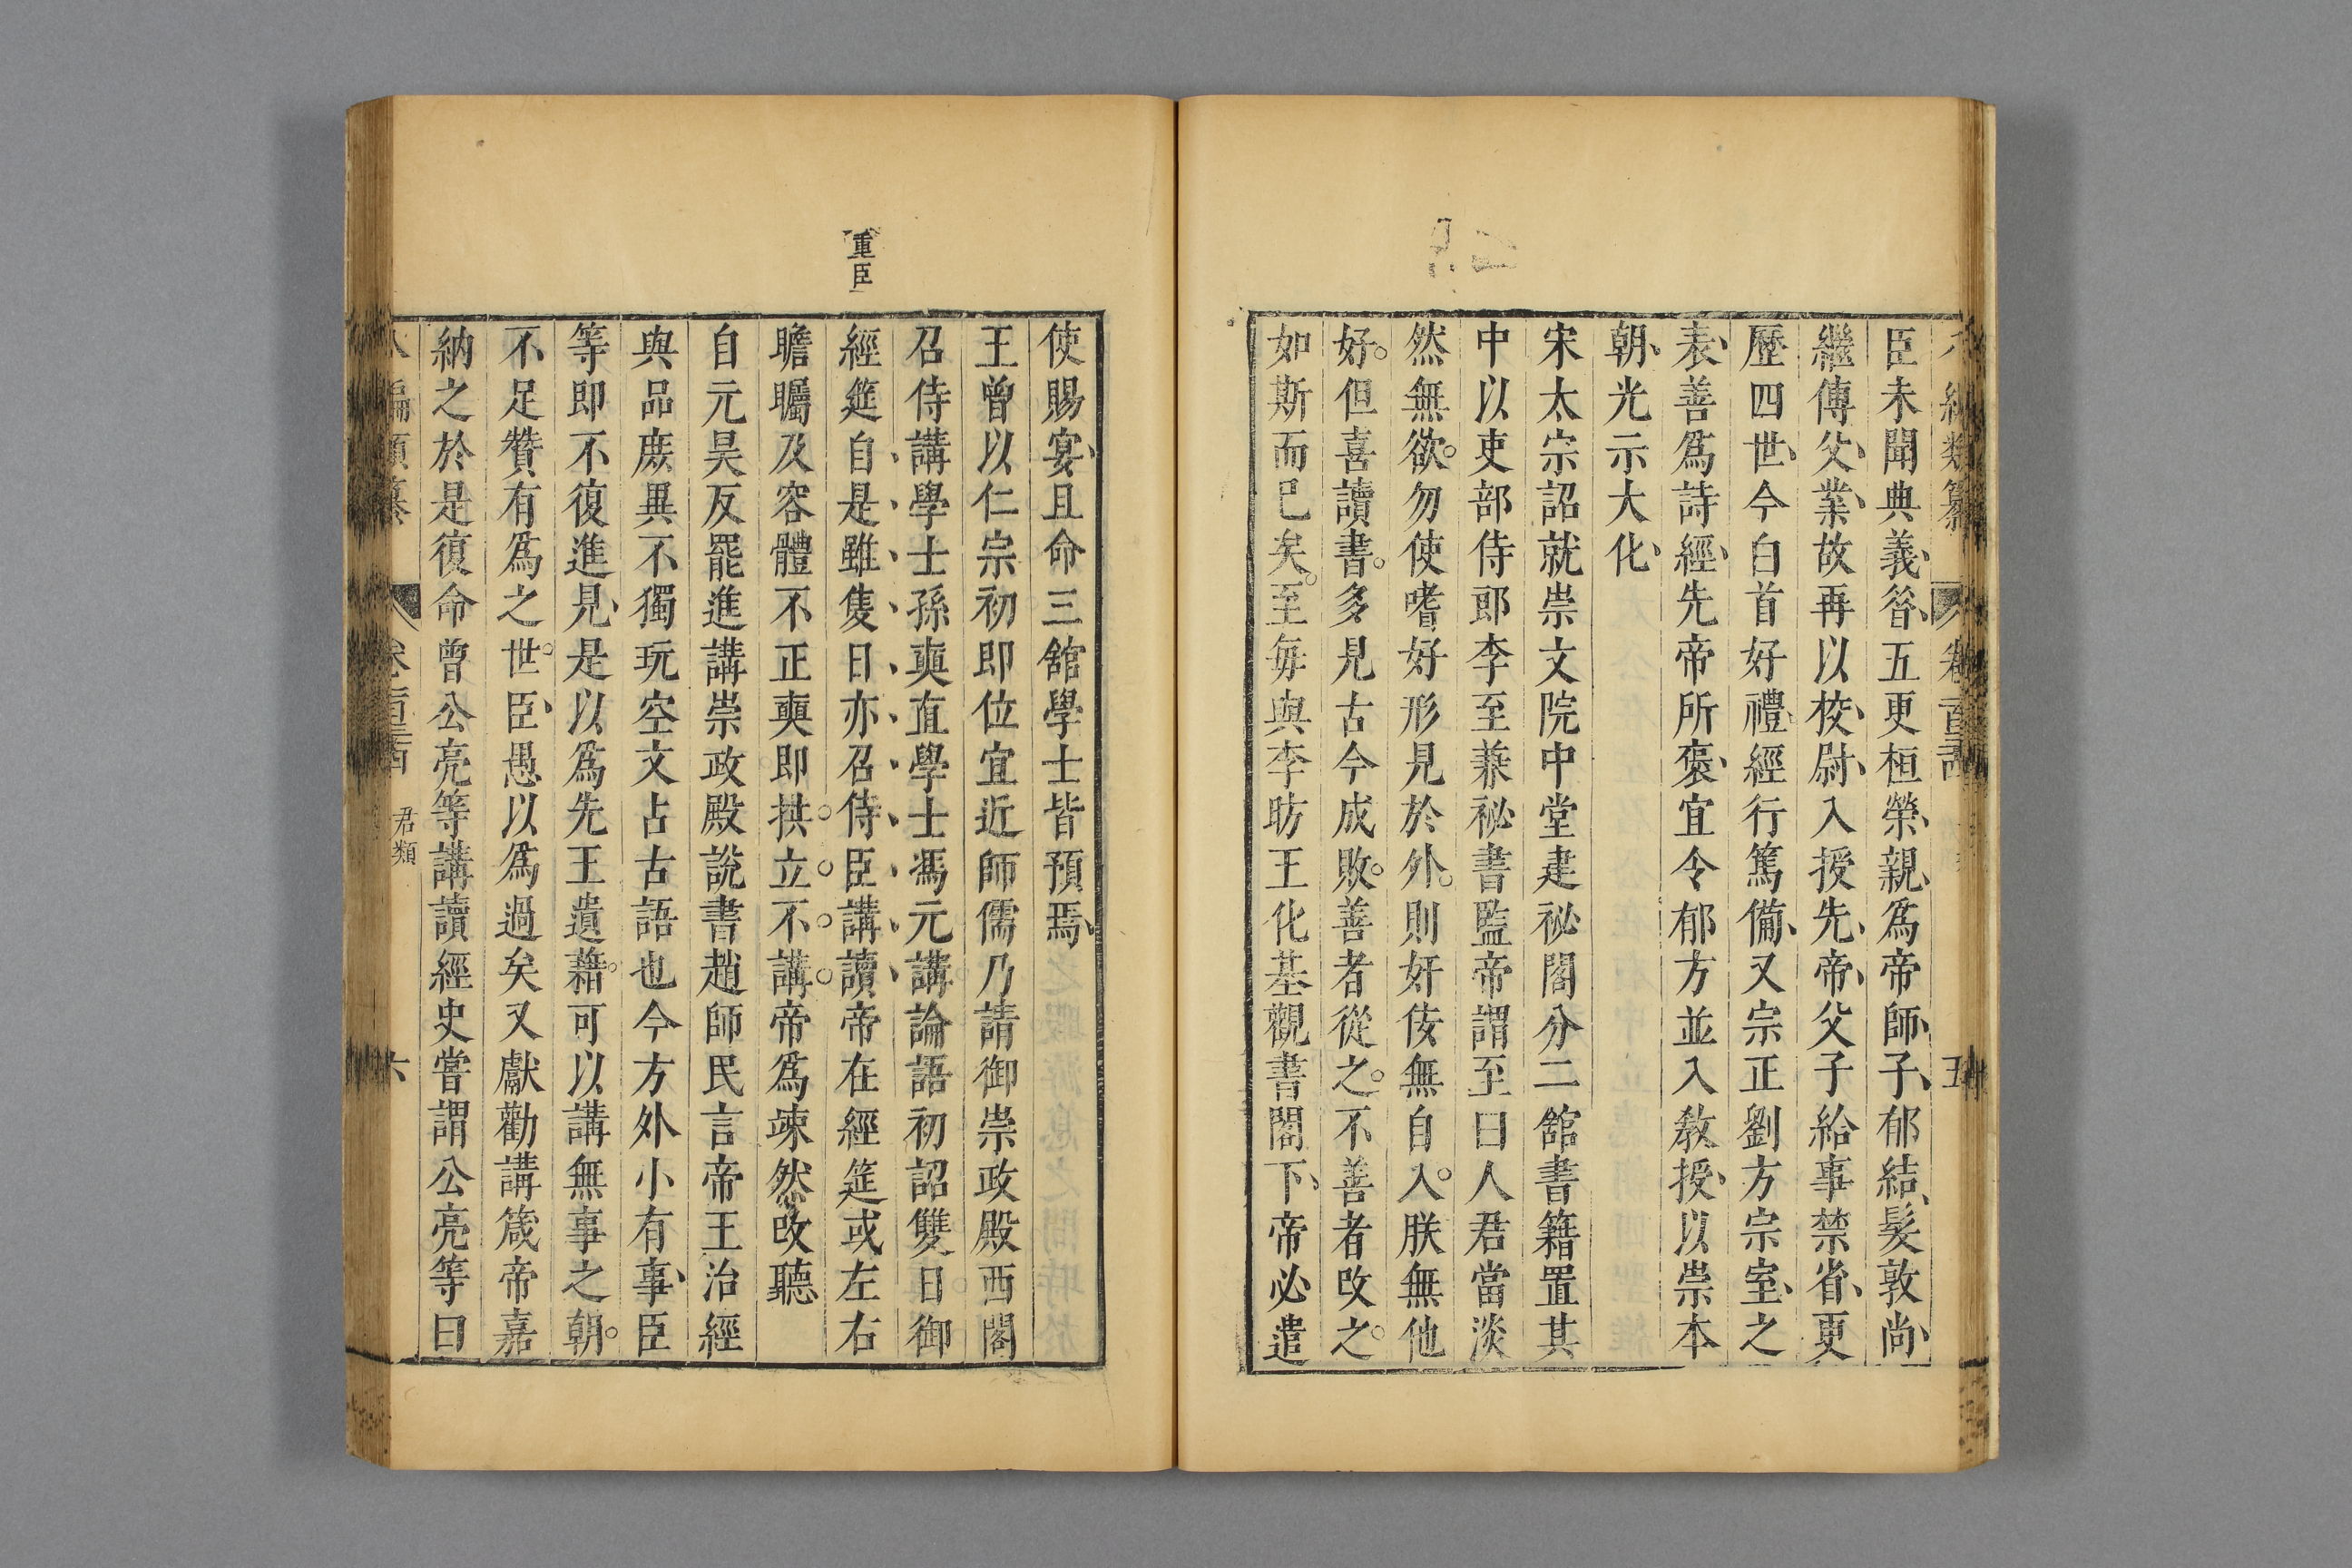 臣未聞典義昝五更桓榮親爲帝師子郁結髮敦尚
繼傳父業故再以校尉入授先帝父子給事禁省更
歷四世今白首好禮經行篤備又宗正劉方宗室之
表善爲詩經先帝所褒宜令郁方並入敎授以崇本
朝光示大化
宋太宗詔就崇文院中堂建祕閣分二舘書籍置其
中以吏部侍郎李至兼祕書監帝謂至曰人君當淡
然無欲勿使嗜好形見於外則奸佞無自入朕無他
好但喜讀書多見古今成敗善者從之不善者改之
如斯而已矣至每與李昉王化基觀書閣下帝必遣
重臣
使賜宴且命三舘學士皆預焉
王曾以仁宗初即位宜近師儒乃請御崇政殿西閣
召侍講學士孫奭直學士馮元講論語初詔雙日御
經筵自是雖隻日亦召侍臣講讀帝在經筵或左右
瞻矚及容體不正奭即拱立不講帝爲竦然改聽
自元昊反罷進講崇政殿說書趙師民言帝王治經
與品庶異不獨玩空文占古語也今方外小有事臣
等即不復進見是以爲先王遺藉可以講無事之朝
不足贊有爲之世臣愚以爲過矣又獻勸講箴帝嘉
納之於是復命曾公亮等講讀經史嘗謂公亮等曰
編類纂 君類 六